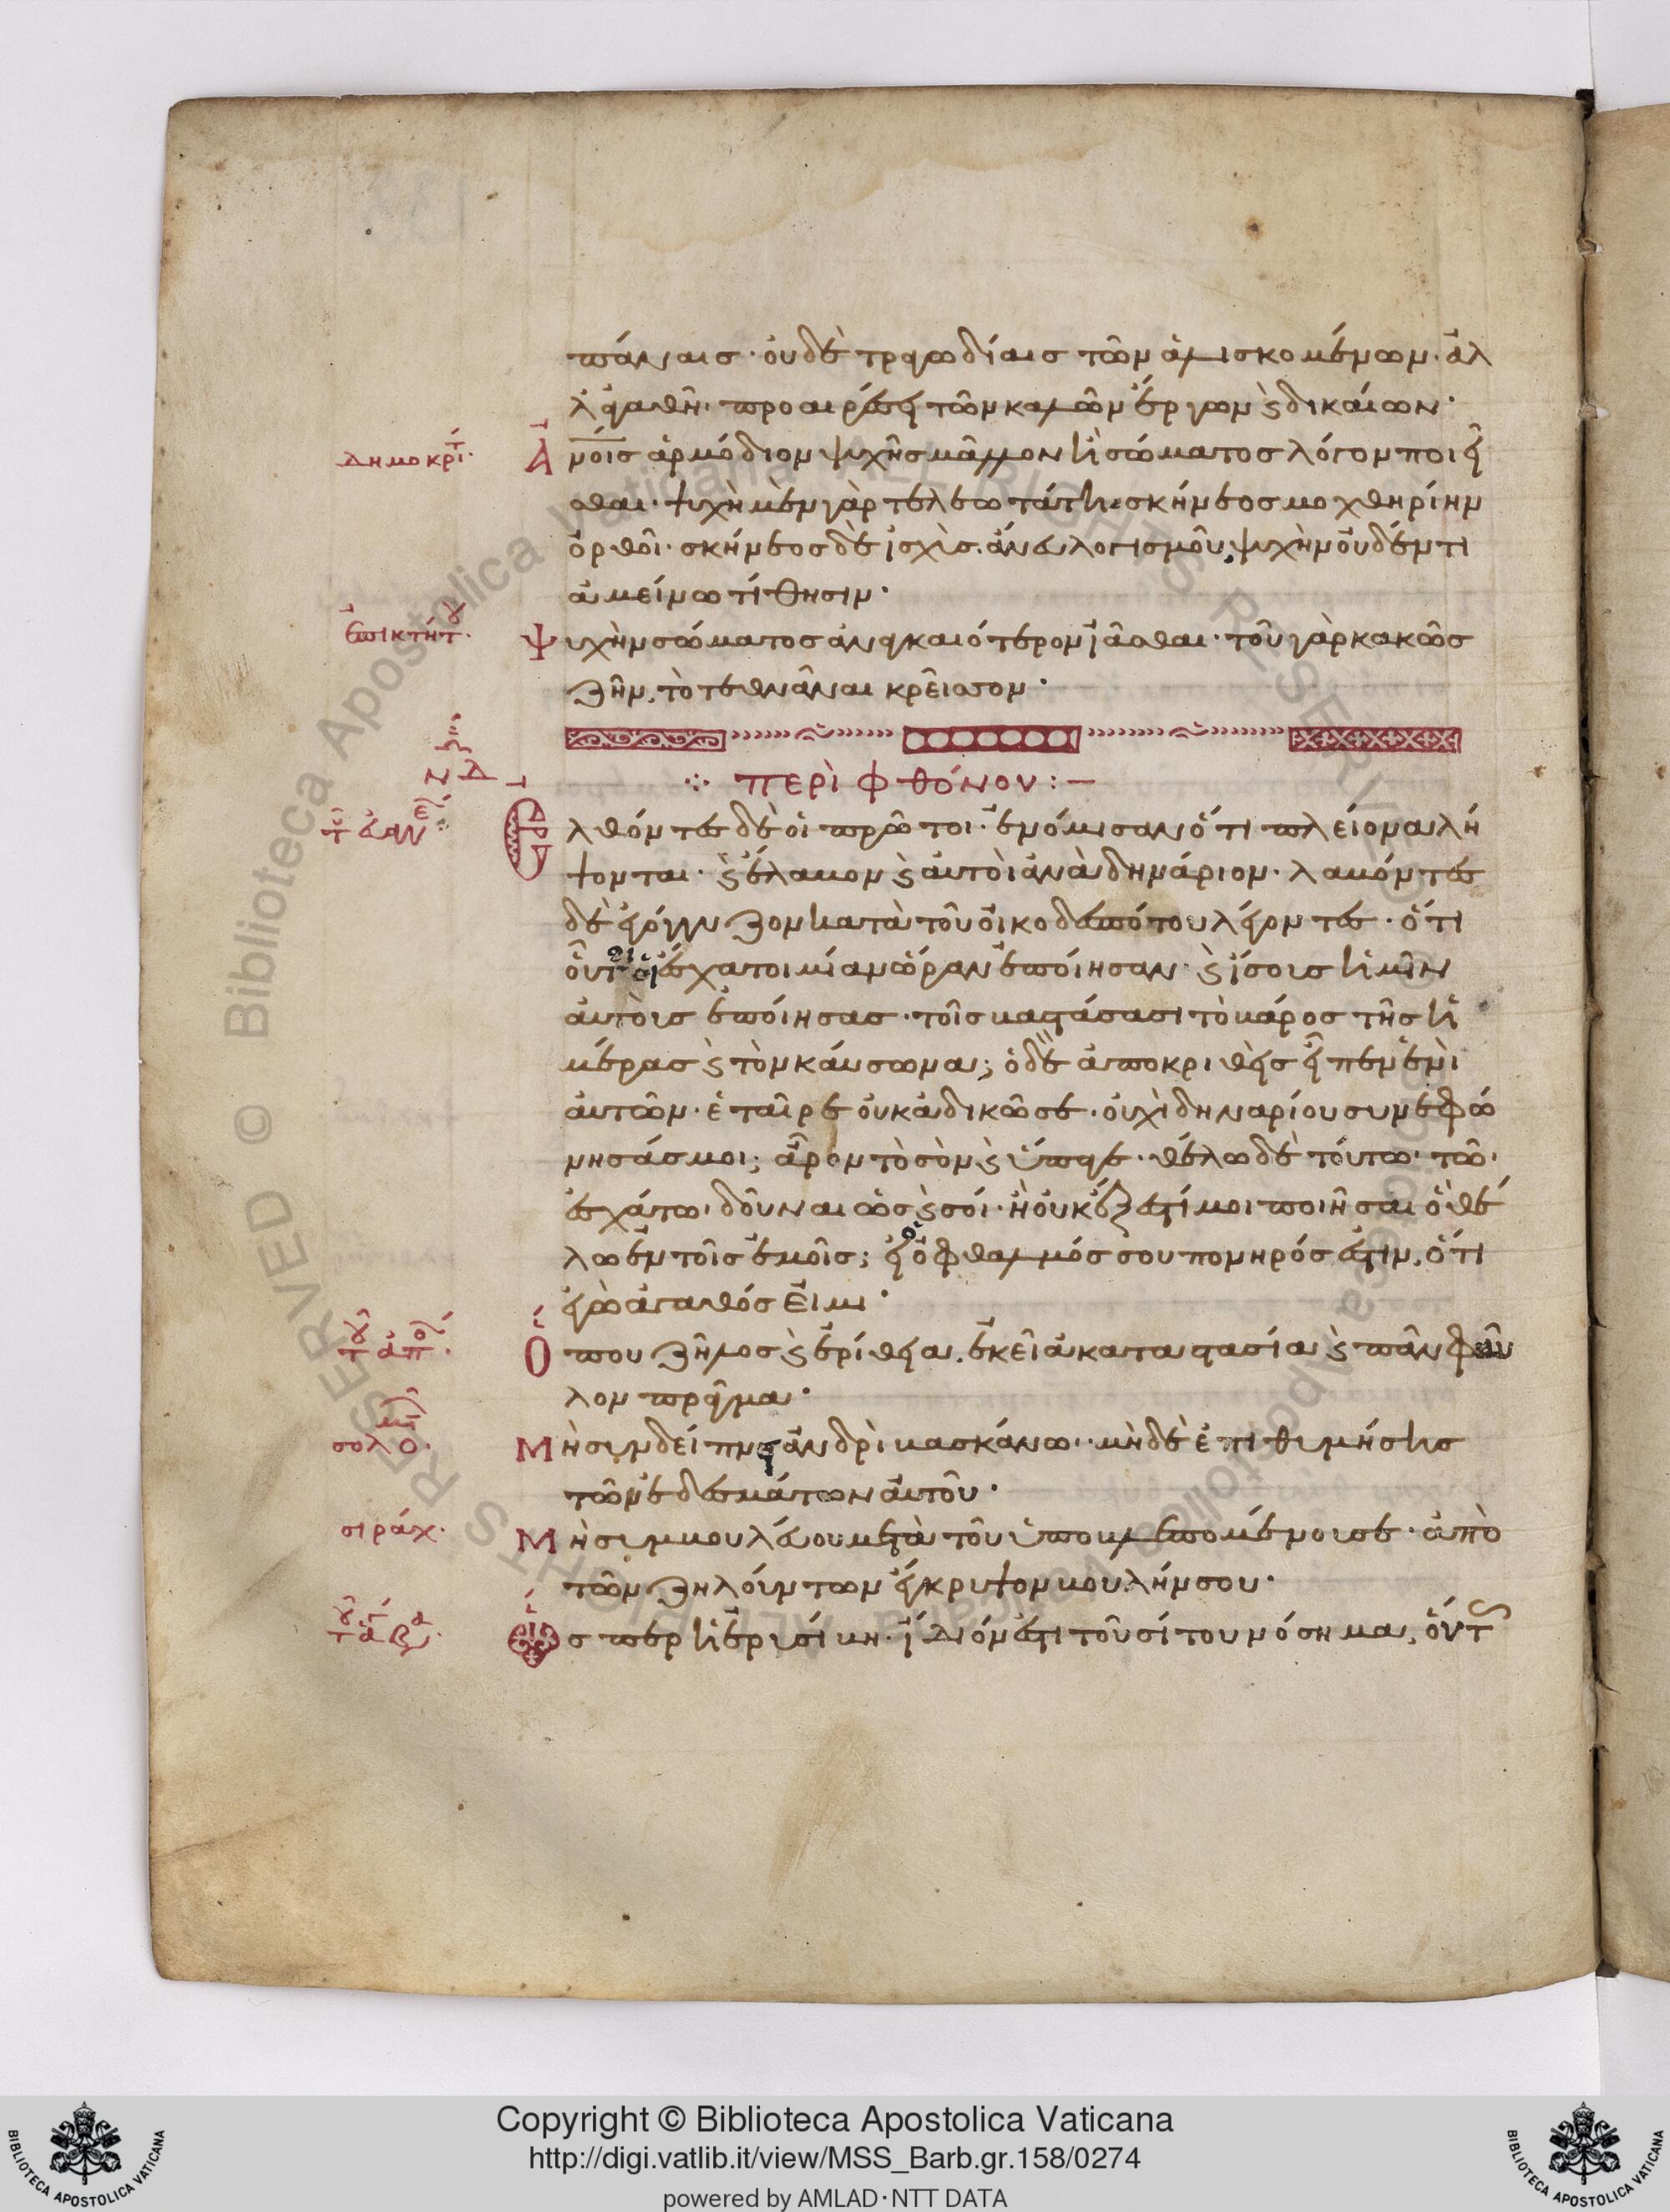 πάναις· οὐδὲ τραγωδίαις τῶν ἁλισκομένων· ἀλ
λ' ἀγαθῆ· προαιρέσει τῶν καλῶν ἔργων ϛ δικαίων·
δημοκρίτ· Ἀνοις ἁρμόδιον ψυχῆς μᾶλλον ἢ σώματος λόγον ποιεῖ
σθαι· ψυχὴ μὲν γὰρ τελεωτάτη σκήνεος μοχθηρίην
ὀρθοῖ· σκήνεος δὲ ἰσχὺς ἄνευ λογισμοῦ, ψυχὴν οὐδέν τι
ἀμείνω τίθησιν·
ἐπικτήτου· Ψυχὴν σώματος ἀναγκαιότερον ἰᾶσθαι· τοῦ γὰρ κακῶς
ζῆν, τὸ τεθνᾶναι κρεῖσσον·
ΝΔ
∴ περὶ φθόνου :—
τοῦ εὐαγγελί Ἐλθόντες δὲ οἱ πρῶτοι· ἐνόμισαν ὅτι πλείονα λή
ψονται· ϛ ἔλαβον ϛ αὐτοὶ ἀνὰ δηνάριον· λαβόντες
δὲ ἐγόγγυζον κατὰ τοῦ οἰκοδεσπότου λέγοντες· ὅτι
οὗτοι οἱ ἔσχατοι μίαν ὥραν ἐποίησαν· ϛ ἴσους ἡμῖν
αὐτοὺς ἐποίησας· τοῖς βαστάσασι τὸ βάρος τῆς ἡ
μέρας ϛ τὸν καύσωνα; ὁ δὲ ἀποκριθεὶς εἶπεν ἑνὶ
αὐτῶν· ἑταῖρε οὐκ ἀδικῶ σε· οὐχὶ δηναρίου συνεφώ
νησάς μοι; ἆρον τὸ σὸν ϛ ὕπαγε· θέλω δὲ τούτω τῶ
ἐσχάτω δοῦναι ὡς ϛ σοί· ἢ οὐκ ἔξεστί μοι ποιῆσαι ὃ θέ
λω ἐν τοῖς ἐμοῖς; εἰ ὁ ὀφθαλμός σου πονηρός ἐστιν, ὅτι
ἐγὼ ἀγαθός εἰμι·
τοῦ ἀποστόλ· Ὅπου ζῆλος ϛ ἐρίθεια, ἐκεῖ ἀκαταστασία ϛ πᾶν φαῦ
λον πρᾶγμα·
σολομ· Μὴ συνδείπνει ἀνδρὶ βασκάνω· μὴδὲ ἐπιθυμήσης
τῶν ἐδεσμάτων αὐτοῦ·
σιράχ· Μὴ συμβουλεύου μετὰ τοῦ ὑποβλεπομένου σε· ἀπὸ
τῶν ζηλούντων σε κρύψον βουλήν σου·
τοῦ ἁγ βασ· Ὥσπερ ἡ ἐρυσίβη· ἴδιόν ἐστι τοῦ σίτου νόσημα, οὕτως